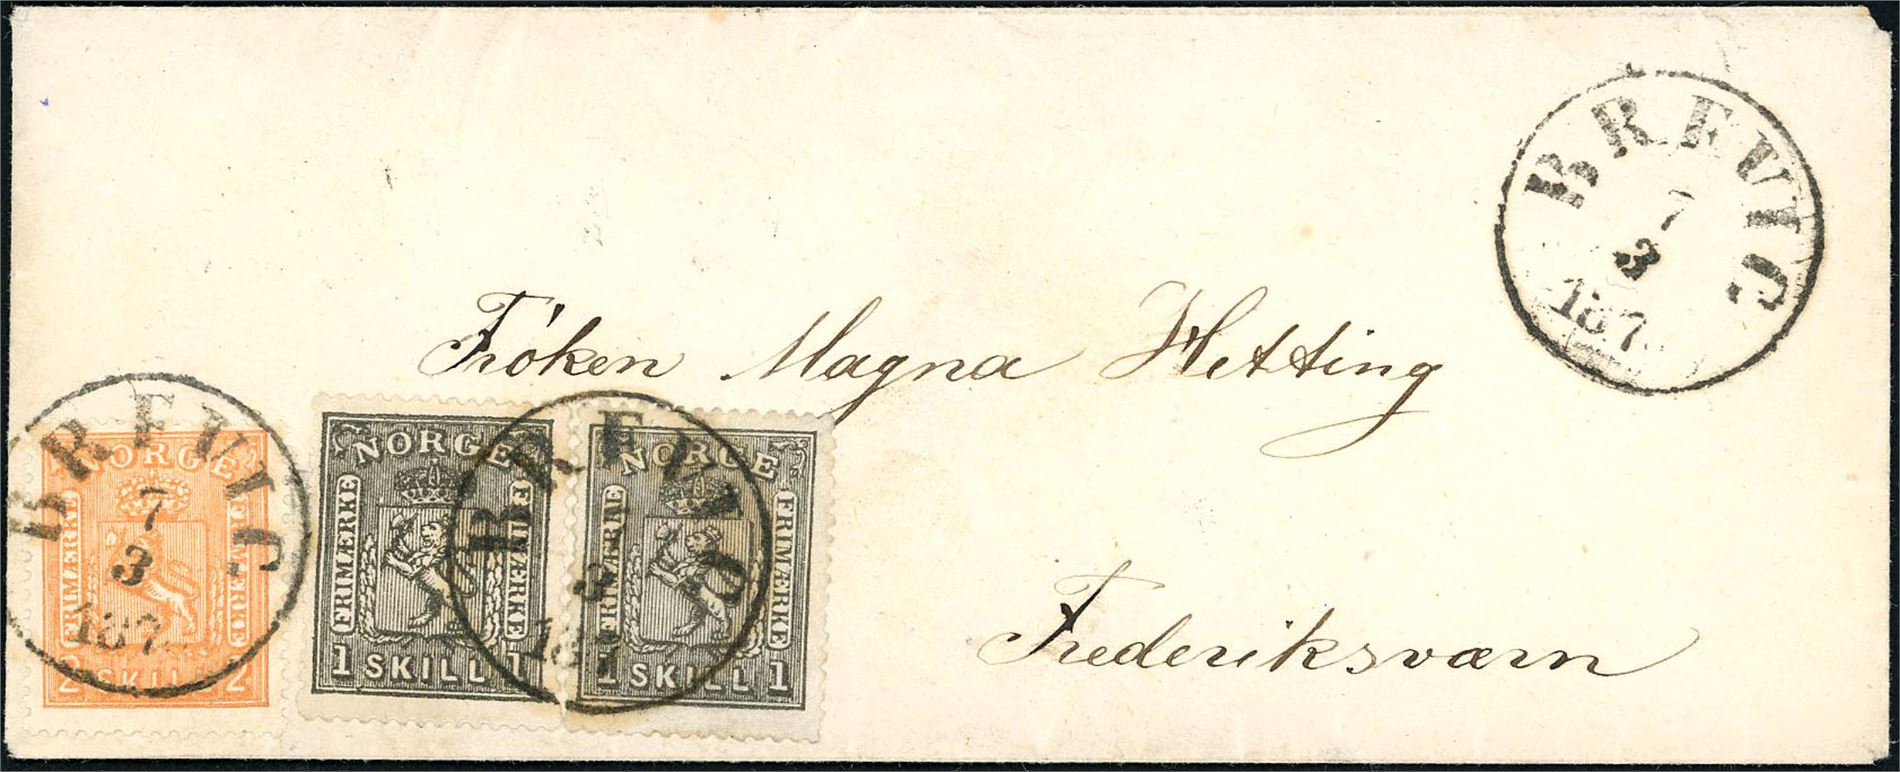 BREVIG
7
3
187
Fröken Magna Hetting
Frederiksværn
BREVIG
7
3
187
NORGE
FRIMÆRKE FRIMÆRKE
2 SKILL 2
BREVIG
3
187
NORGE
FRIMÆRKE FRIMÆRKE
1 SKILL 1
NORGE
FRIMÆRKE FRIMÆRKE
1 SKILL 1